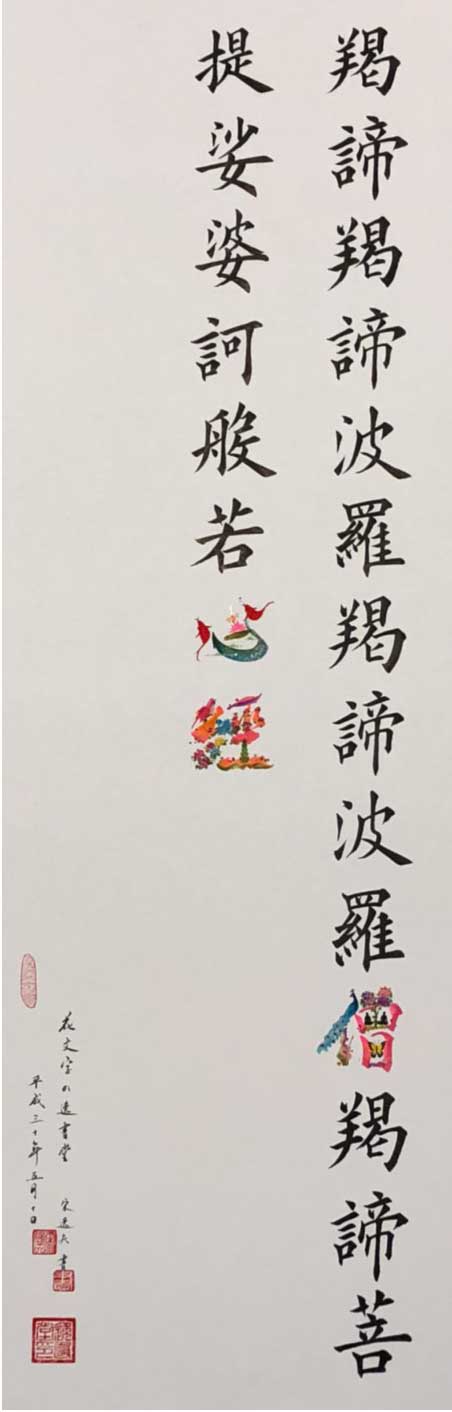 羯諦羯諦波羅羯諦波羅僧羯諦菩
提娑婆訶般若心經
花文字の遠書堂
平成三十年五月十日